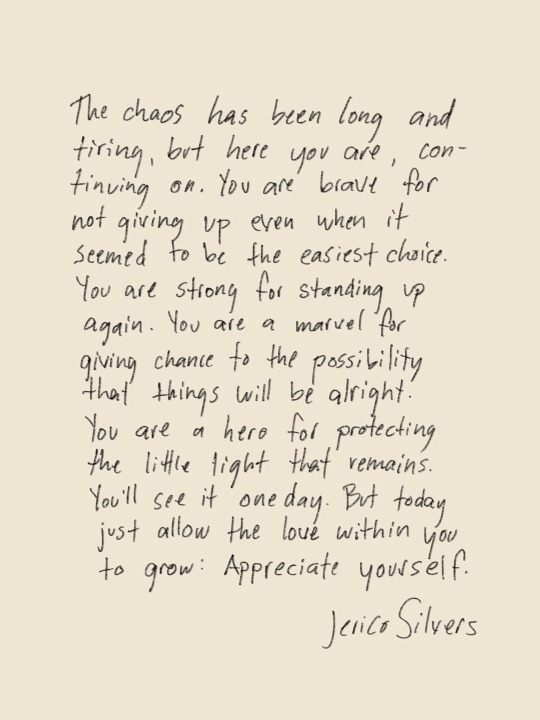 The chaos has been long and
tiring, but here you are, con-
tinuing on. You are brave for
not giving up even when it
seemed to be the easiest choice.
You are strong for standing up
again. You are a marvel for
giving chance to the possibility
that things will be alright.
You are a hero for protecting
the little light that remains.
You'll see it one day. But today
just allow the love within you
to grow: Appreciate yourself.
Jerico Silvers